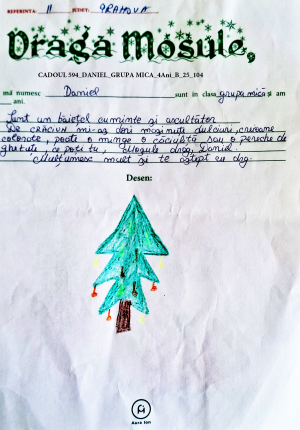 REFERINTA: 11 JUDET: PRAHOVA
Draga Mosule,
CADOUL 594_DANIEL_GRUPA MICA_4Ani_B_25_104
mă numesc Daniel sunt in clasa grupa mică și am
ani.
Sunt un băiețel cuminte și ascultător
De CRĂCIUN mi-aș dori mașinuțe dulciuri, creioane
colorate, poate o minge o căciuliță sau o pereche de
ghetuțe ce poți tu, Moșule drag, Daniel.
Mulțumesc mult și te aștept cu drag
Desen:
Aura Ion